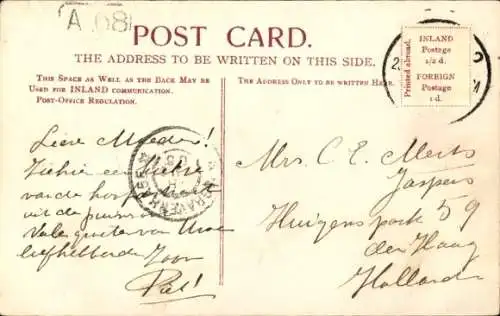 A 08
POST CARD.
THE ADDRESS TO BE WRITTEN ON THIS SIDE.
THIS SPACE AS WELL AS THE BACK MAY BE
USED FOR INLAND COMMUNICATION.
POST-OFFICE REGULATION.
THE ADDRESS ONLY TO BE WRITTEN HERE.
Printed abroad.
INLAND
Postage
1/2 d.
FOREIGN
Postage
1 d.
Lieve Moeder!
Ziehier een
van de
uit de
Vele groeten van Uwe
liefhebbende Zoon
Piet!
GRAVENHAGE
Mrs. C. E. Merts
Jaspers
Huigenspark 59
den Haag
Holland